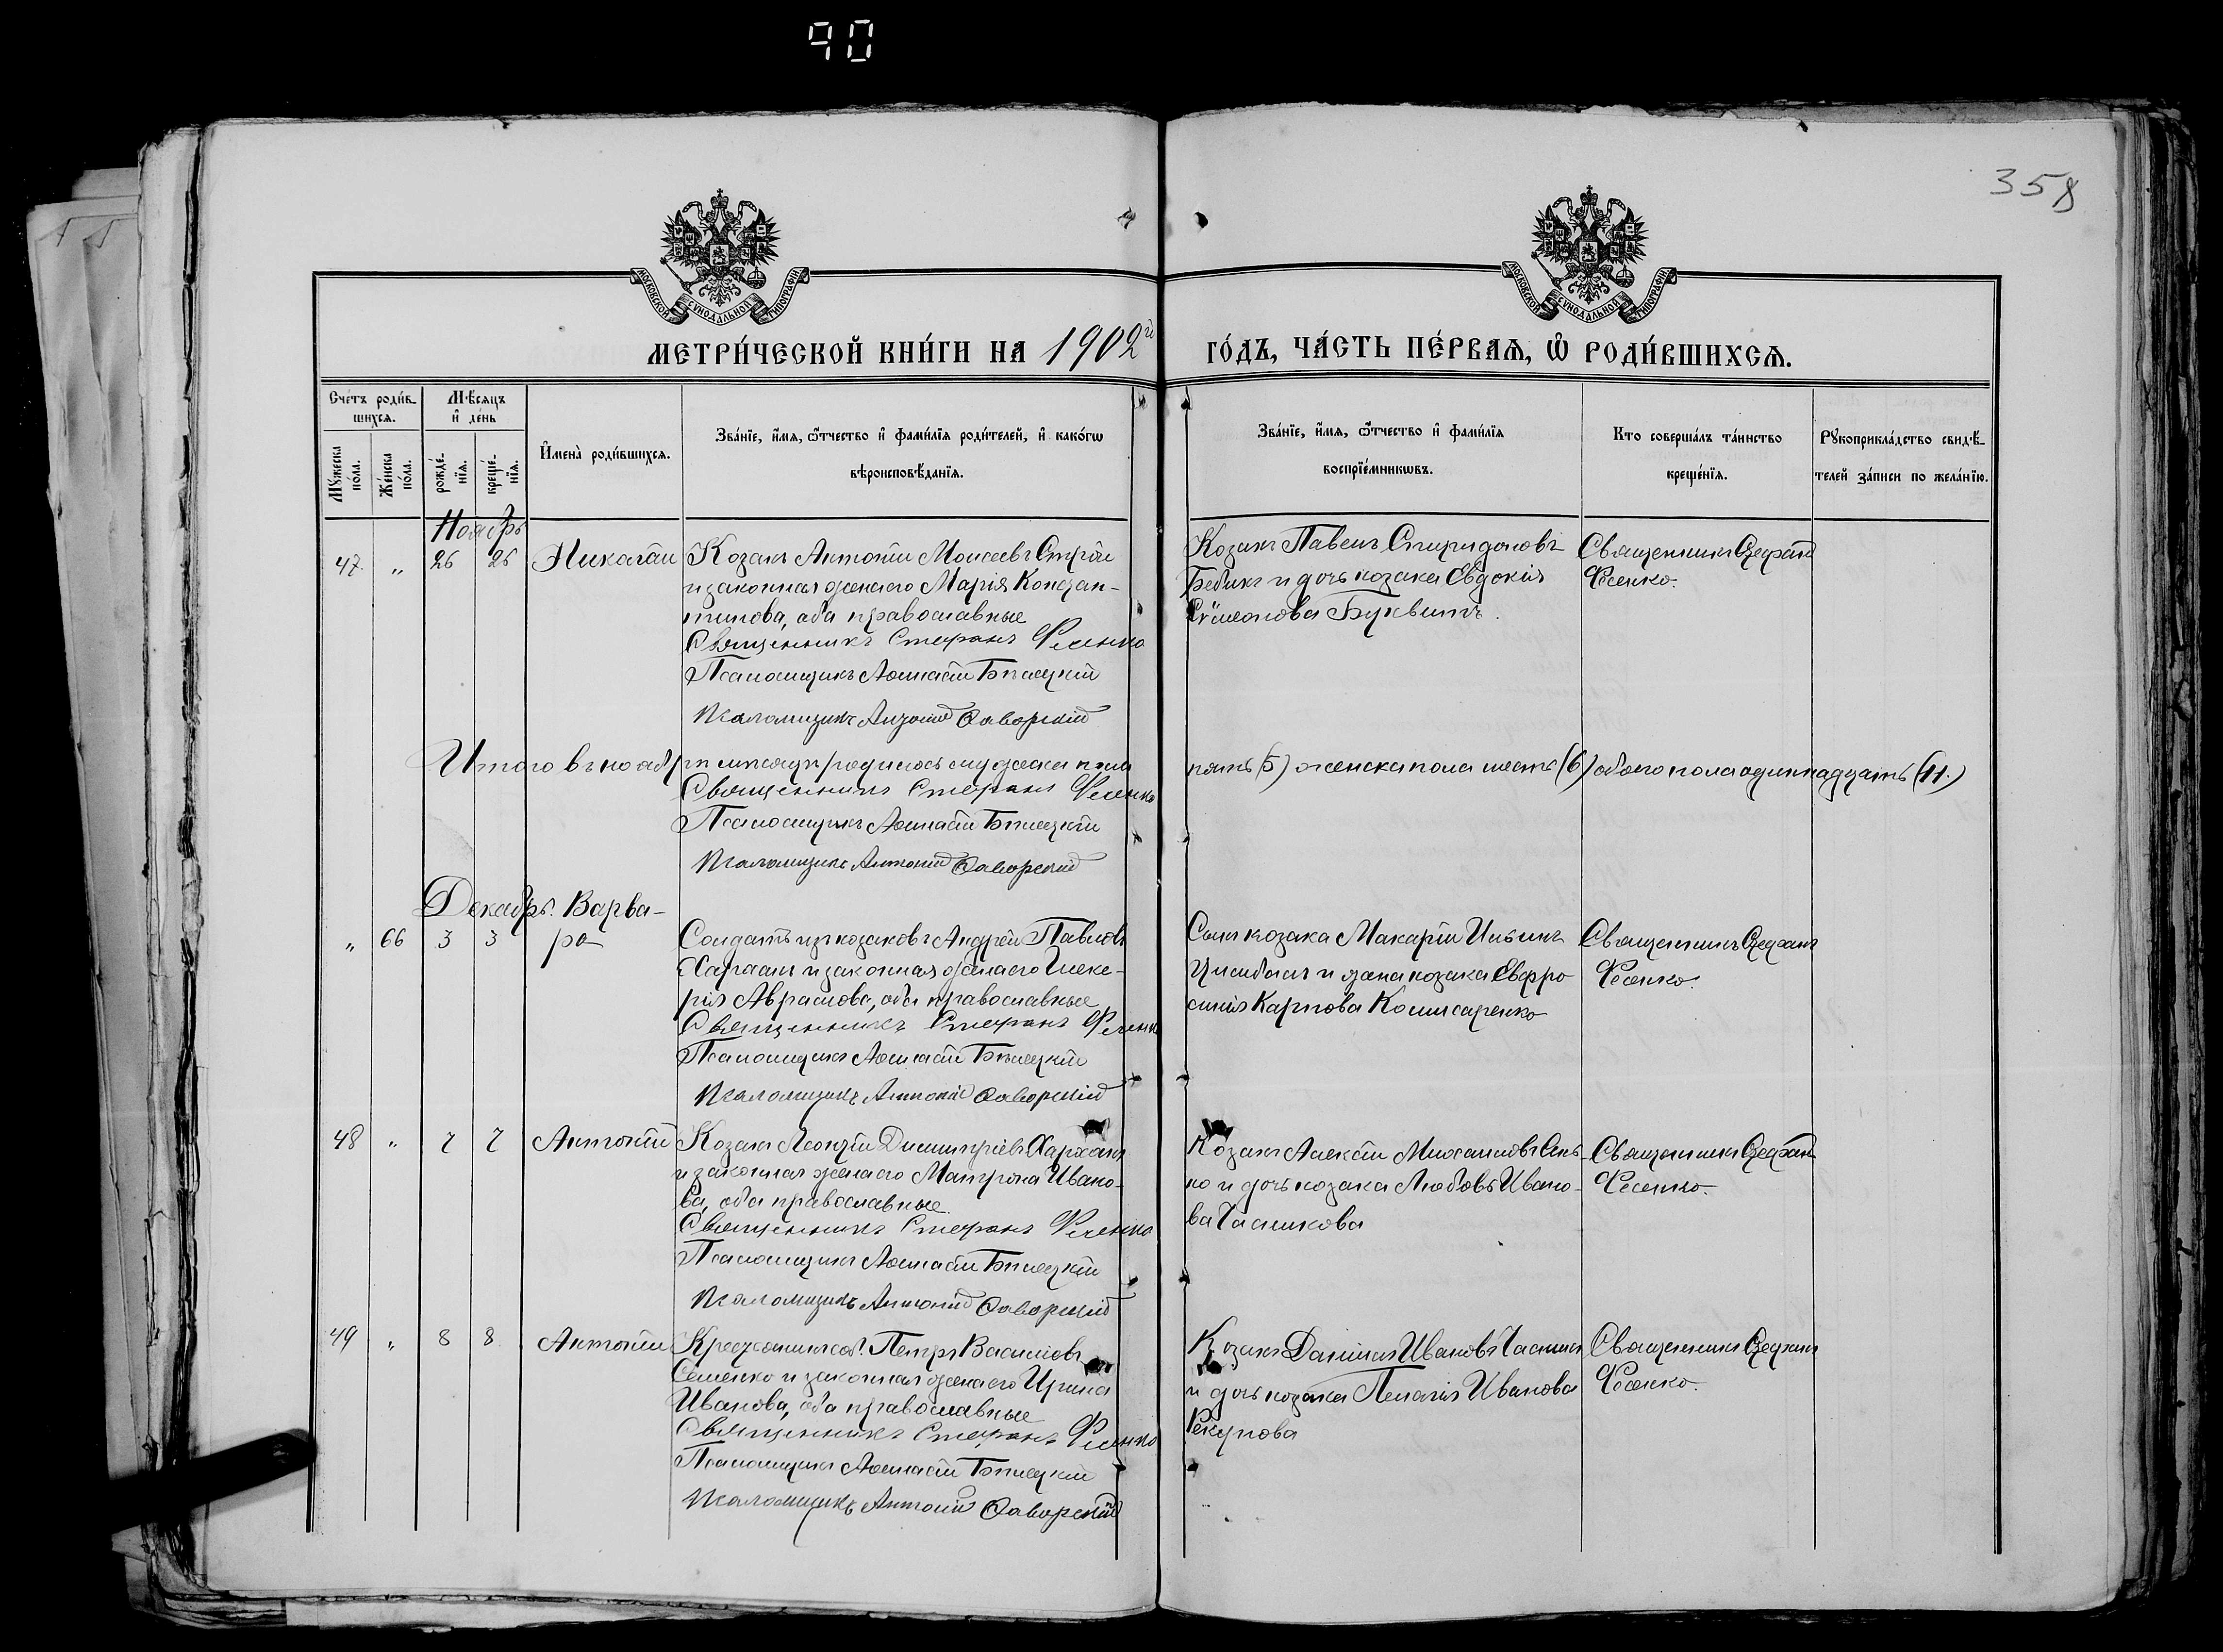 90
358
МОСКОВСКОЙ СѴНОДАЛЬНОЙ ТИПОГРАФІИ
МОСКОВСКОЙ СѴНОДАЛЬНОЙ ТИПОГРАФІИ
МЕТРИ́ЧЕСКОЙ КНИ́ГИ НА 1902й ГО́ДЪ, ЧА́СТЬ ПЕ́РВАѦ, Ѡ҃ РОДИ́ВШИХСѦ.
Сче́тъ роди́в-
шихсѧ.
Мꙋ́жеска по́ла.
Же́нска по́ла.
Мѣ́сѧцъ и҆ де́нь
рожде́-нїѧ.
креще́-нїѧ.
И҆мена̀ роди́вшихсѧ.
Зва́нїе, и҆́мѧ, ѻ҆́тчество и҆ фами́лїѧ роди́телей, и҆ како́гѡ
вѣроисповѣ́данїѧ.
Зва́нїе, и҆́мѧ, ѻ҆́тчество и҆ фами́лїѧ
воспрїе́мникѡвъ.
Кто соверша́лъ та́инство
креще́нїѧ.
Рꙋкоприкла́дство свидѣ́-
телей за́писи по жела́нїю.
Ноябрь
47. „ 26 26 Николай
Козакъ Антоній Моисеевъ Стрій
и законная жена его Марія Констан-
тинова, оба православные
Священникъ Стефанъ Фесенко
Псаломщикъ Афанасій Бѣлецкій
Псаломщикъ Антоній Яворскій
Козакъ Павелъ Спиридоновъ
Бебикъ и дочь козака Евдокія
Сѵмеонова
Священникъ Стефанъ
Фесенко.
Итого въ ноябрѣ мѣсяцѣ родилось мужеска пола пять (5) женска пола шесть (6) обоего пола одиннадцать (11.)
Священникъ Стефанъ Фесенко
Псаломщикъ Афанасій Бѣлецкій
Псаломщикъ Антоній Яворскій
Декабрь. Варва-
„ 66 3 3 ра
Солдатъ изъ козаковъ Андрей Павловъ
и законная жена его Глике-
рія Авраамова, оба православные
Священникъ Стефанъ Фесенко
Псаломщикъ Афанасій Бѣлецкій
Псаломщикъ Антоній Яворскій
Сынъ козака Макарій Ильинъ
Цымбалъ и жена козака Евфро
синія Карпова Комисаренко
Священникъ Стефанъ
Фесенко.
48 „ 7 7 Антоній
Козакъ Леонтій Димитріевъ Харханъ
и законная жена его Матрона Ивано-
ва, оба православные.
Священникъ Стефанъ Фесенко
Псаломщикъ Афанасій Бѣлецкій
Псаломщикъ Антоній Яворскій
Козакъ Алексѣй Михаиловъ
ко и дочь козака Любовь Ивано-
ва Часникова
Священникъ Стефанъ
Фесенко.
49 „ 8 8 Антоній
Петръ Василіовъ
Семенко и законная жена его Ирина
Иванова, оба православные
Священникъ Стефанъ Фесенко
Псаломщикъ Афанасій Бѣлецкій
Псаломщикъ Антоній Яворскій
Козакъ Даніилъ Ивановъ Часникъ
и дочь козака Пелагія Иванова
Рекунова
Священникъ Стефанъ
Фесенко.